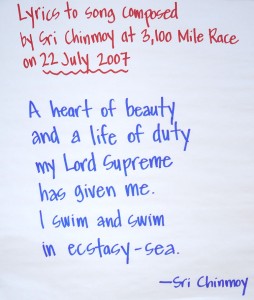 Lyrics to song composed
by Sri Chinmoy at 3,100 Mile Race
on 22 July 2007
A heart of beauty
and a life of duty
my Lord Supreme
has given me.
I swim and swim
in ecstasy-sea.
—Sri Chinmoy